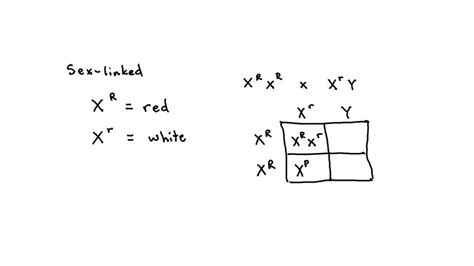 Sex-linked
X^R = red
X^r = white
X^R X^R x X^r Y
X^r Y
X^R X^R X^r
X^R X^R